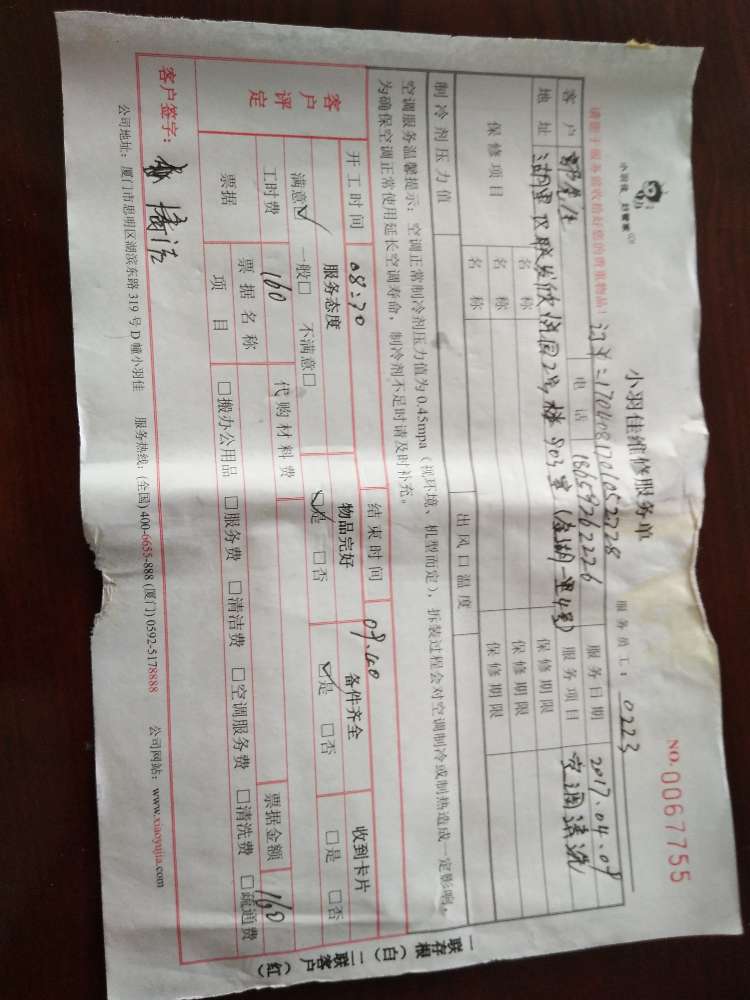 小羽佳 好管家
小羽佳维修服务单
NO. 0067755
请您于服务前收拾好您的贵重物品!
服务员工: 0223
客户 电话 18659262226 服务日期 2017.04.09
地址 湖里区联发欣悦园2号楼903室 服务项目 空调清洗
保修项目 名称 保修期限
名称 保修期限
名称 保修期限
制冷剂压力值 出风口温度
空调服务温馨提示: 空调正常制冷剂压力值为 0.45mpa (视环境、机型而定), 拆装过程会对空调制冷或制热造成一定影响。
为确保空调正常使用延长空调寿命, 制冷剂不足时请及时补充。
客户评定
开工时间 08:30 结束时间 09:40
服务态度 物品完好 备件齐全 收到卡片
满意☑ 一般□ 不满意□ ☑是 □否 ☑是 □否 □是 □否
工时费 160 代购材料费 票据金额 160
票据 票据名称
项目 □搬办公用品 □服务费 □清洁费 □空调服务费 □清洗费 □疏通费
客户签字:
公司地址: 厦门市思明区湖滨东路 319 号 D 幢小羽佳 服务热线: (全国) 400-6655-888 (厦门) 0592-5178888 公司网站: www.xiaoyujia.com
一联存根 (白) 二联客户 (红)